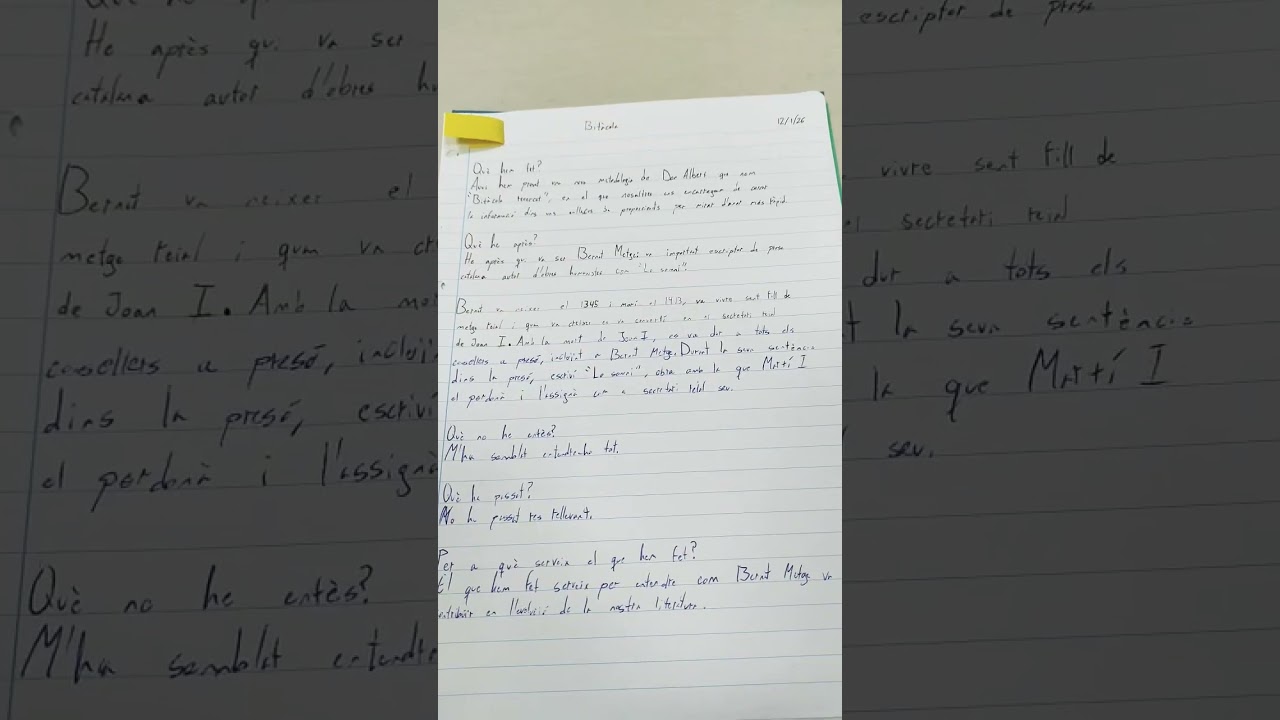 Bitàcola 12/1/26
Què hem fet?
Avui hem provat una nova metodologia de Don Albert que nom
"Bitàcola", en el que nosaltres ens encarregam de cercar
la informació dins uns enllaços per mirar d'anar més ràpid.
Què he après?
He après qui va ser Bernat Metge: un important escriptor de prosa
catalana autor d'obres humanistes com "Lo somni".
Bernat va néixer el 1345 i morí el 1413, va viure sent fill de
metge reial i quan va créixer es va convertí en el secretari reial
de Joan I. Amb la mort de Joan I, es va dur a tots els
consellers a presó, incloint a Bernat Metge. Durant la seva sentència
dins la presó, escriví "Lo somni", obra amb la que Martí I
el perdonà i l'assignà com a secretari reial seu.
Què no he entès?
M'ha semblat entendre-ho tot.
Què he pensat?
No he pensat res rellevant.
Per a què serveix el que hem fet?
El que hem fet serveix per entendre com Bernat Metge va
contribuir en l'evolució de la nostra literatura.